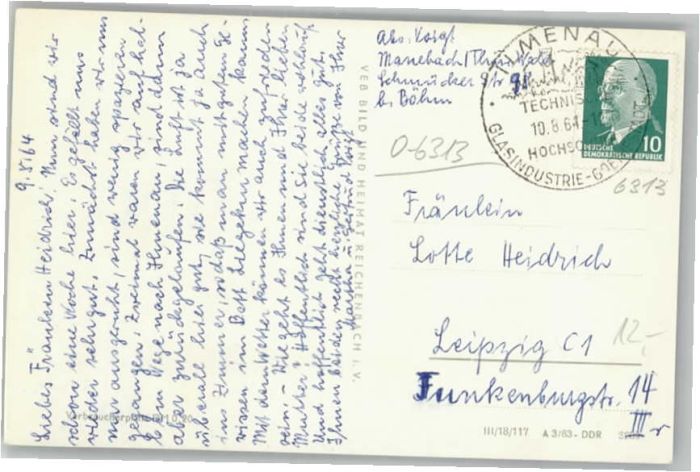 9.8.64
Liebes Fräulein Heidrich! Nun sind wir
schon eine Woche hier. Es gefällt uns
wieder sehr gut. Zunächst haben wir uns
nur ausgeruht, sind wenig spazieren
gegangen. Zweimal waren wir auf halbem
Wege nach Ilmenau, sind dann
aber zurückgelaufen. Die Luft ist ja
überall hier gut, wie kommt ja auch
ins Zimmer, sodaß man mit gutem Gewissen
im Bett Liegekur machen kann.
Mit dem Wetter können wir auch zufrieden
sein. – Wie geht es Ihnen und Ihrer lieben
Mutter? Hoffentlich sind Sie beide wohlauf.
Und hoffentlich geht dienstlich alles gut.
Ihnen beiden recht herzliche Grüße von Ihrer
u. Gertrud Voigt
Verbraucherpreis MDN 0,20
VEB BILD UND HEIMAT REICHENBACH i. V.
Abs: Voigt
Manebach/Thür. Wald
Schmücker Str 91
b. Böhm
0-6313
ILMENAU
TECHNISCHE
10.8.64
HOCHSCHULE
GLASINDUSTRIE
10
DEUTSCHE
DEMOKRATISCHE REPUBLIK
6313
Fräulein
Lotte Heidrich
Leipzig C1
12,-
Funkenburgstr. 14
III r
III/18/117 A 3/63-DDR